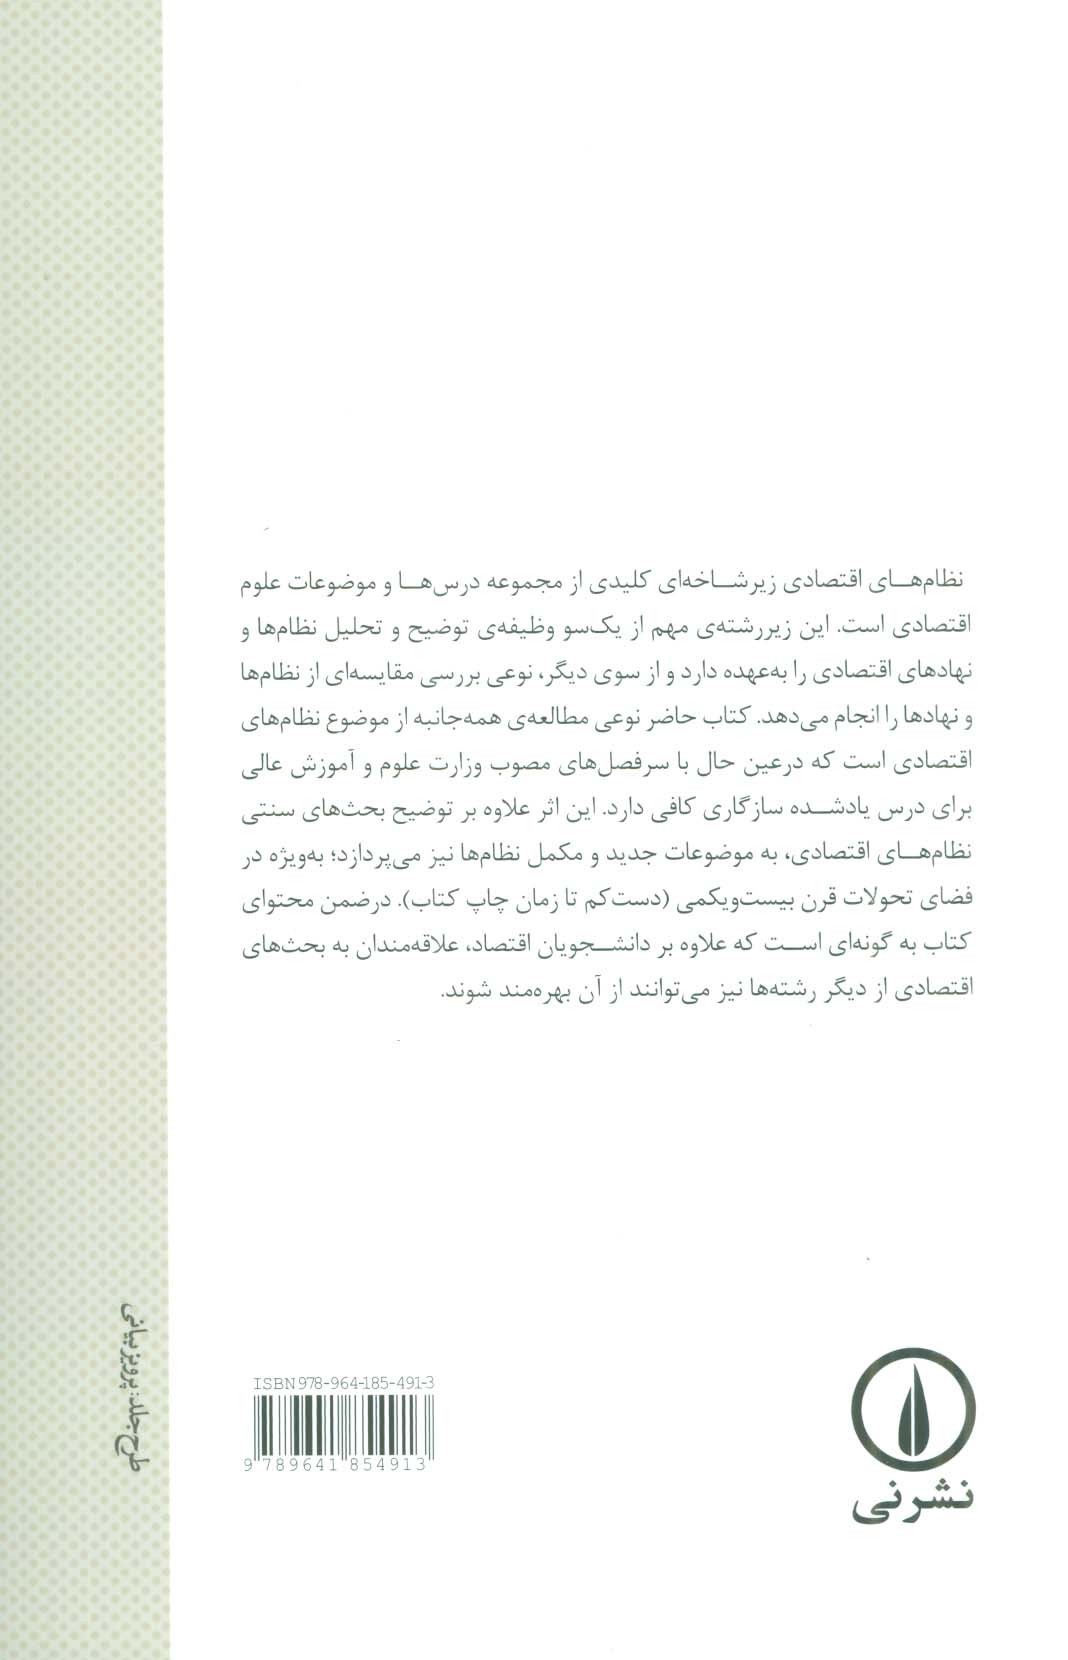 نظام‌های اقتصادی زیرشاخه‌ای کلیدی از مجموعه درس‌ها و موضوعات علوم
اقتصادی است. این زیررشته‌ی مهم از یک‌سو وظیفه‌ی توضیح و تحلیل نظام‌ها و
نهادهای اقتصادی را به‌عهده دارد و از سوی دیگر، نوعی بررسی مقایسه‌ای از نظام‌ها
و نهادها را انجام می‌دهد. کتاب حاضر نوعی مطالعه‌ی همه‌جانبه از موضوع نظام‌های
اقتصادی است که درعین حال با سرفصل‌های مصوب وزارت علوم و آموزش عالی
برای درس یادشده سازگاری کافی دارد. این اثر علاوه بر توضیح بحث‌های سنتی
نظام‌های اقتصادی، به موضوعات جدید و مکمل نظام‌ها نیز می‌پردازد؛ به‌ویژه در
فضای تحولات قرن بیست‌ویکمی (دست‌کم تا زمان چاپ کتاب). درضمن محتوای
کتاب به گونه‌ای است که علاوه بر دانشجویان اقتصاد، علاقه‌مندان به بحث‌های
اقتصادی از دیگر رشته‌ها نیز می‌توانند از آن بهره‌مند شوند.
طرح جلد: پرویز بیانی
ISBN 978-964-185-491-3
9 789641 854913
نشرنی